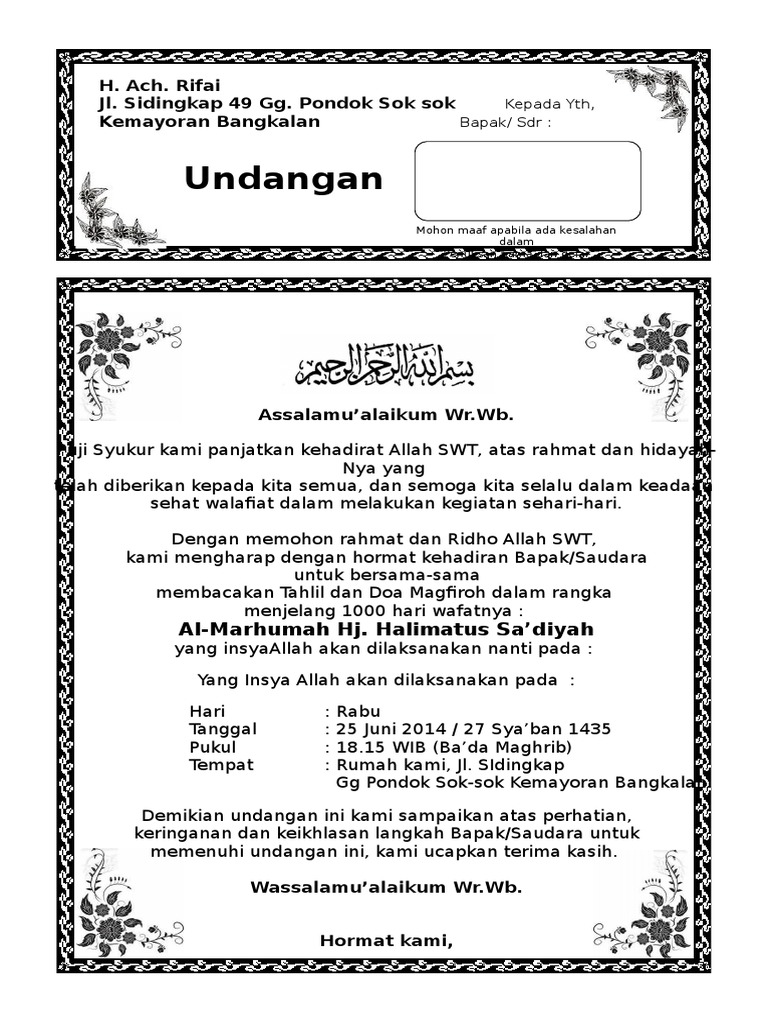 H. Ach. Rifai
Jl. Sidingkap 49 Gg. Pondok Sok sok
Kemayoran Bangkalan
Kepada Yth,
Bapak/ Sdr :
Undangan
Mohon maaf apabila ada kesalahan
dalam
بسم الله الرحمن الرحيم
Assalamu’alaikum Wr.Wb.
Syukur kami panjatkan kehadirat Allah SWT, atas rahmat dan hidayah-
Nya yang
telah diberikan kepada kita semua, dan semoga kita selalu dalam keadaan
sehat walafiat dalam melakukan kegiatan sehari-hari.
Dengan memohon rahmat dan Ridho Allah SWT,
kami mengharap dengan hormat kehadiran Bapak/Saudara
untuk bersama-sama
membacakan Tahlil dan Doa Magfiroh dalam rangka
menjelang 1000 hari wafatnya :
Al-Marhumah Hj. Halimatus Sa’diyah
yang insyaAllah akan dilaksanakan nanti pada :
Yang Insya Allah akan dilaksanakan pada :
Hari : Rabu
Tanggal : 25 Juni 2014 / 27 Sya’ban 1435
Pukul : 18.15 WIB (Ba’da Maghrib)
Tempat : Rumah kami, Jl. SIdingkap
Gg Pondok Sok-sok Kemayoran Bangkalan
Demikian undangan ini kami sampaikan atas perhatian,
keringanan dan keikhlasan langkah Bapak/Saudara untuk
memenuhi undangan ini, kami ucapkan terima kasih.
Wassalamu’alaikum Wr.Wb.
Hormat kami,